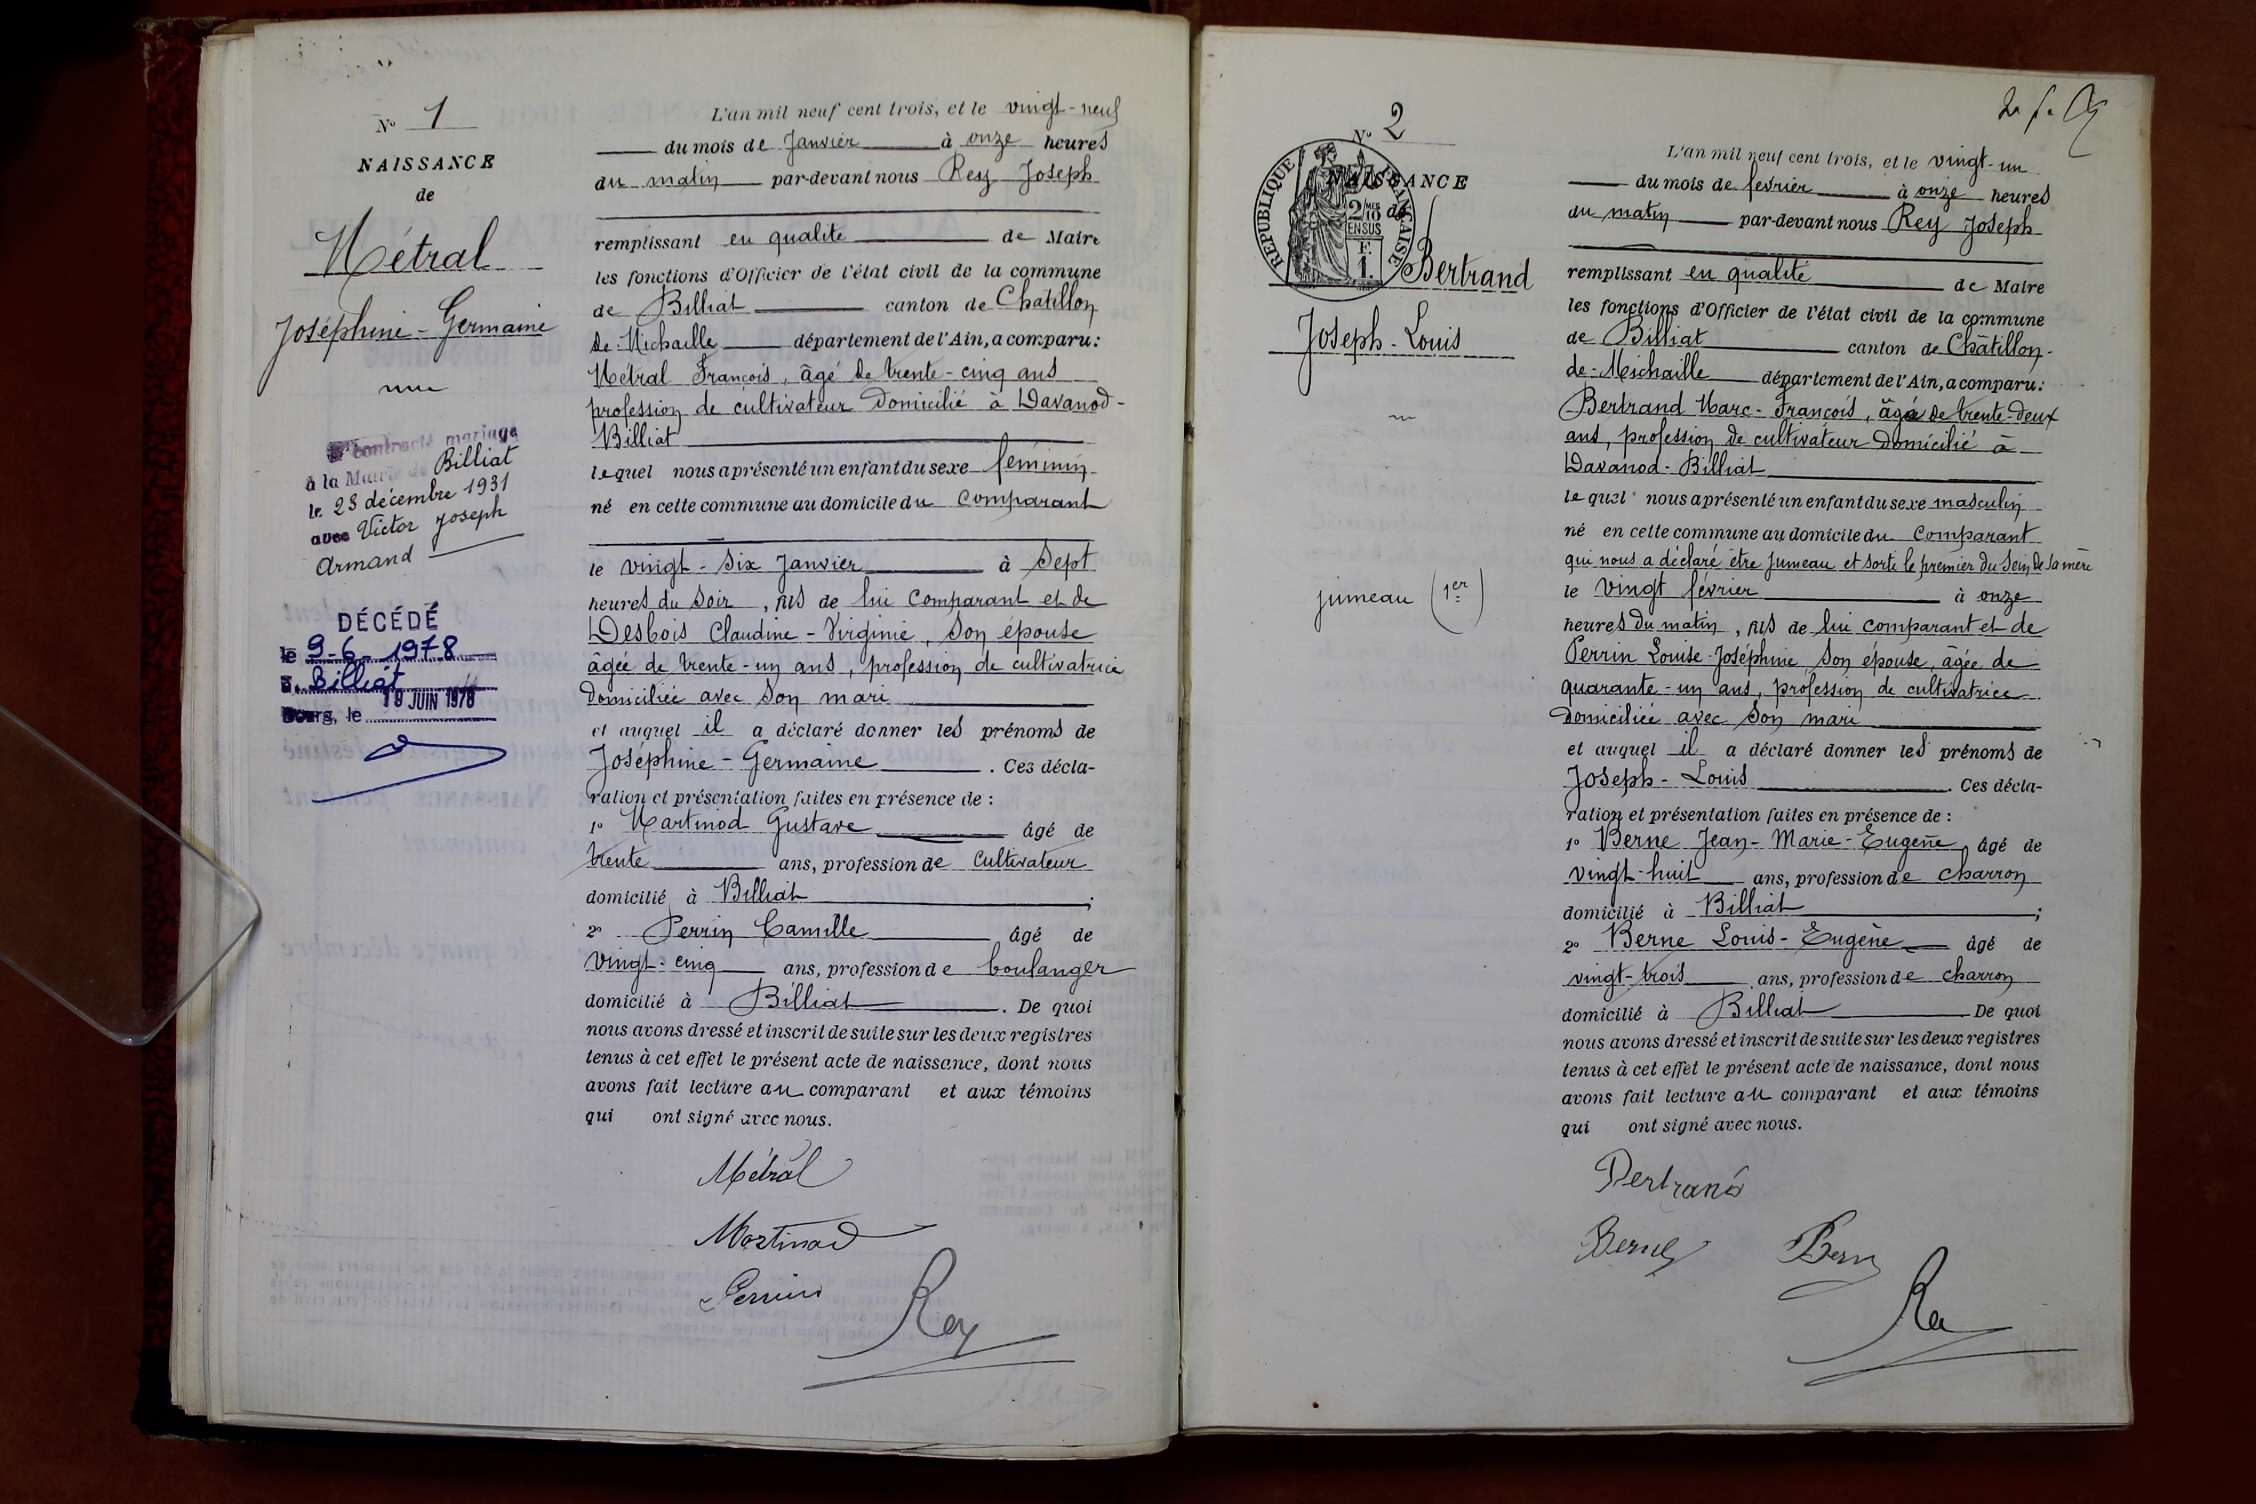 Nº 1
NAISSANCE
de
Métral
Joséphine - Germaine
à la Mairie de Billiat
le 23 décembre 1931
avec Victor Joseph
Armand
DÉCÉDÉ
le 9-6-1978
à Billiat
Bourg, le 19 JUIN 1978
L'an mil neuf cent trois, et le vingt-neuf
du mois de Janvier à onze heures
du matin par-devant nous Rey Joseph
remplissant en qualité de Maire
les fonctions d'Officier de l'état civil de la commune
de Billiat canton de Châtillon
de-Michaille département de l'Ain, a comparu:
Métral François, âgé de trente-cinq ans
profession de cultivateur domicilié à Davanod-
Billiat
lequel nous a présenté un enfant du sexe féminin
né en cette commune au domicile du comparant
le vingt-six Janvier à sept
heures du soir, fils de lui comparant et de
Desbois Claudine-Virginie, son épouse
âgée de trente-un ans, profession de cultivatrice
domiciliée avec son mari
et auquel il a déclaré donner les prénoms de
Joséphine-Germaine. Ces décla-
ration et présentation faites en présence de:
1º Martinod Gustave âgé de
trente ans, profession de cultivateur
domicilié à Billiat;
2º Perrin Camille âgé de
vingt-cinq ans, profession de boulanger
domicilié à Billiat. De quoi
nous avons dressé et inscrit de suite sur les deux registres
tenus à cet effet le présent acte de naissance, dont nous
avons fait lecture au comparant et aux témoins
qui ont signé avec nous.
Métral
Martinod
Perrin
Rey
Nº 2
NAISSANCE
de
REPUBLIQUE FRANÇAISE
2/10 EN SUS
F.
1.
Bertrand
Joseph-Louis
jumeau (1er)
L'an mil neuf cent trois, et le vingt-un
du mois de février à onze heures
du matin par-devant nous Rey Joseph
remplissant en qualité de Maire
les fonctions d'Officier de l'état civil de la commune
de Billiat canton de Châtillon-
de-Michaille département de l'Ain, a comparu:
Bertrand Marc-François, âgé de trente-deux
ans, profession de cultivateur domicilié à
Davanod-Billiat
lequel nous a présenté un enfant du sexe masculin
né en cette commune au domicile du comparant
qui nous a déclaré être jumeau et sorti le premier du sein de sa mère
le vingt février à onze
heures du matin, fils de lui comparant et de
Perrin Louise-Joséphine, son épouse, âgée de
quarante-un ans, profession de cultivatrice
domiciliée avec son mari
et auquel il a déclaré donner les prénoms de
Joseph-Louis. Ces décla-
ration et présentation faites en présence de:
1º Berne Jean-Marie-Eugène, âgé de
vingt-huit ans, profession de charron
domicilié à Billiat;
2º Berne Louis-Eugène âgé de
vingt-trois ans, profession de charron
domicilié à Billiat De quoi
nous avons dressé et inscrit de suite sur les deux registres
tenus à cet effet le présent acte de naissance, dont nous
avons fait lecture au comparant et aux témoins
qui ont signé avec nous.
Bertrand
Berne Bern